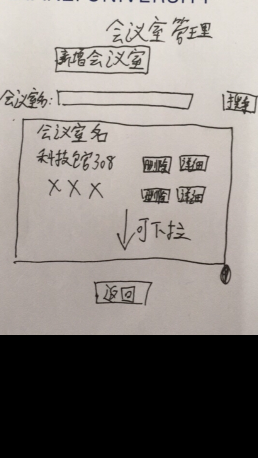 UNIVERSITY
会议室管理
新增会议室
会议室名: 搜索
会议室名
科技馆308 删除 详细
XXX 删除 详细
可下拉
返回